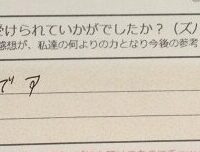 受けられていかがでしたか？（ズバ
感想が、私達の何よりの力となり今後の参考
です